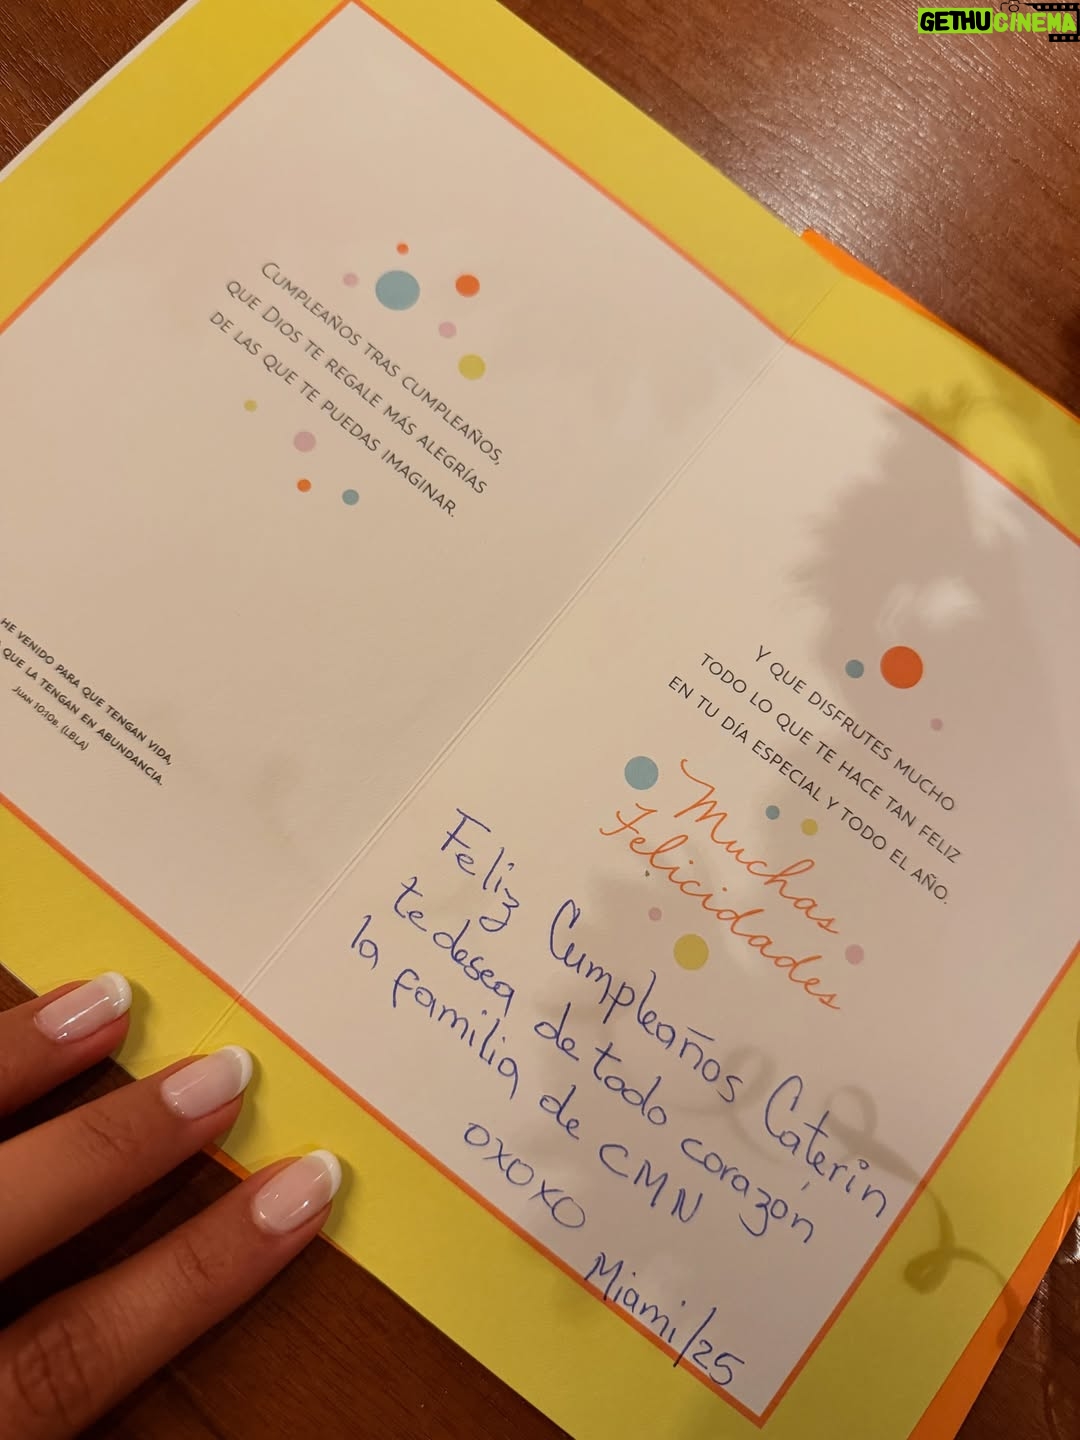 GETHUCINEMA
CUMPLEAÑOS TRAS CUMPLEAÑOS,
QUE DIOS TE REGALE MÁS ALEGRÍAS
DE LAS QUE TE PUEDAS IMAGINAR.
HE VENIDO PARA QUE TENGAN VIDA,
QUE LA TENGAN EN ABUNDANCIA.
JUAN 10:10B. (LBLA)
Y QUE DISFRUTES MUCHO
TODO LO QUE TE HACE TAN FELIZ
EN TU DÍA ESPECIAL Y TODO EL AÑO.
Muchas
Felicidades
Feliz Cumpleaños Caterin
te desea de todo corazón
la familia de CMN
OXOXO
Miami/25